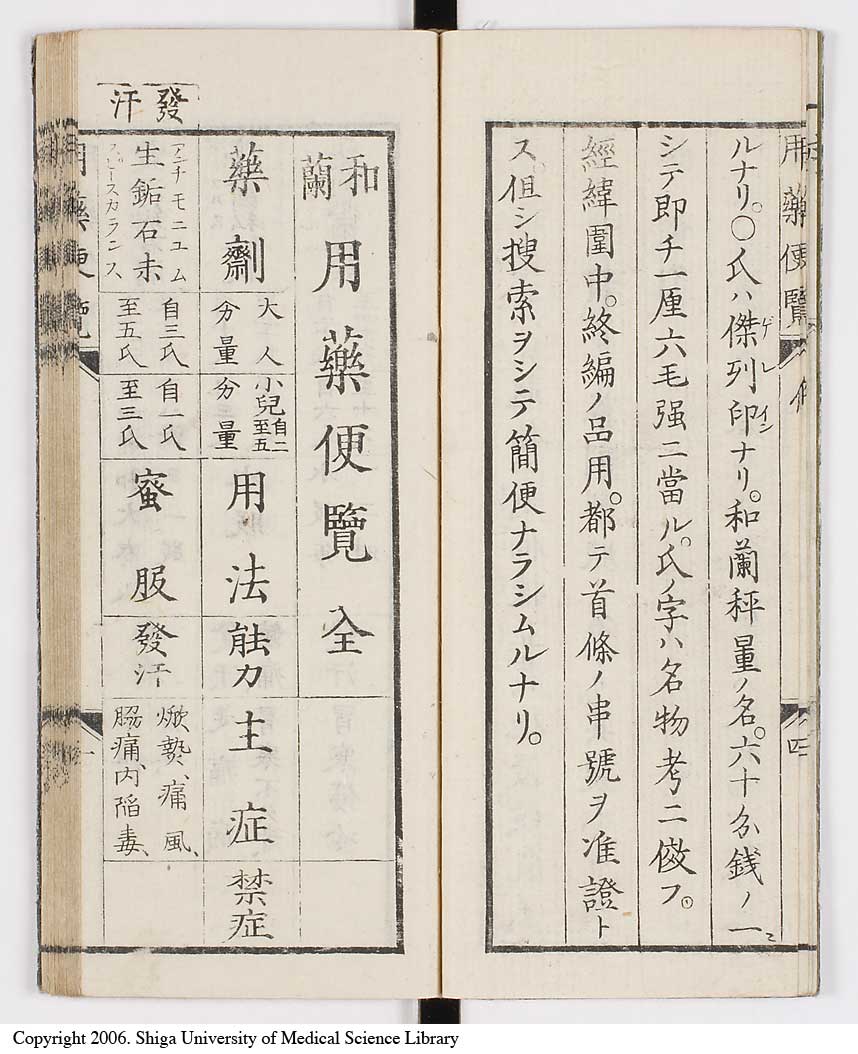 用藥便覽
四
ルナリ。〇氏ハ傑列印ナリ。和蘭秤量ノ名。六十分錢ノ一ニ
ゲレイン
シテ即チ一厘六毛强ニ當ル。氏ノ字ハ名物考ニ倣フ。
經緯圍中。終編ノ品用。都テ首條ノ串號ヲ准證ト
ス。但シ搜索ヲシテ簡便ナラシムルナリ。
和蘭用藥便覽 全
發汗
藥劑
大人分量
小兒自二至五分量
用法
能力
主症
禁症
アンチモニユム
生鉐石末
スピースガランス
自三氏至五氏
自一氏至三氏
蜜服
發汗
焮熱、痛風、
腸痛、内陷毒、
用藥便覽
一